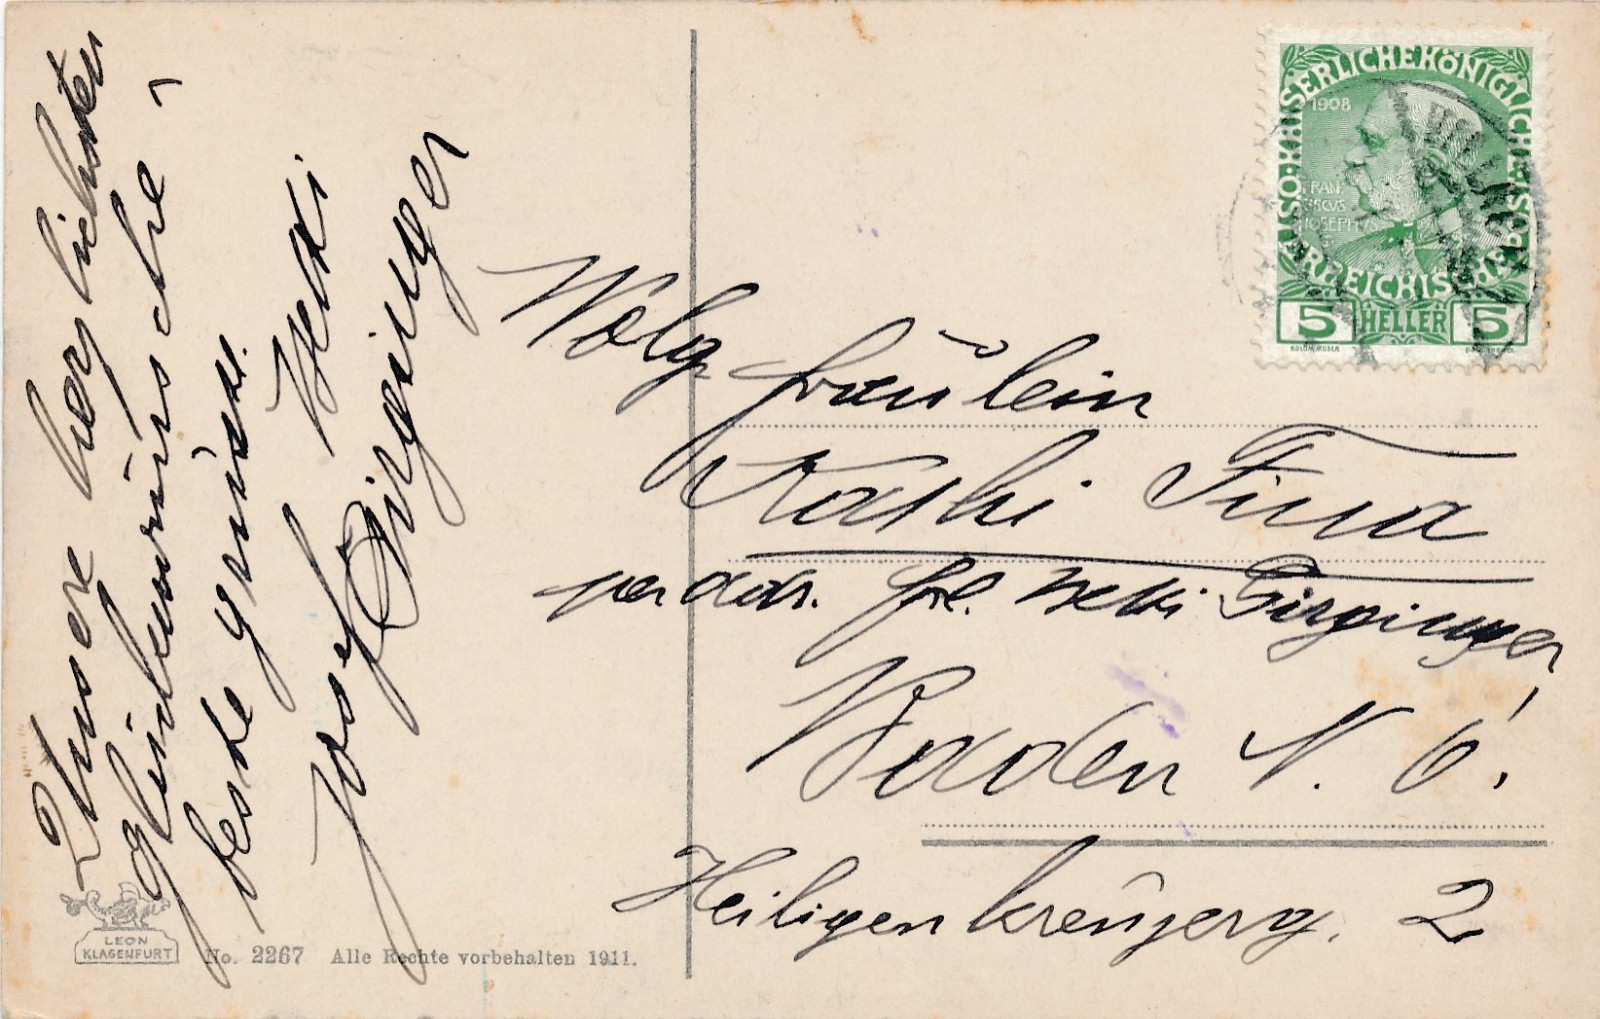 Unsere herzlichsten
Glückwünsche,
beste Grüsse.
Josef
Girginger
Wolg.
Fräulein
Kathi Fina
per Adr. Frl. Betti Girginger
Baden N. Ö.
Heiligenkreuzerg. 2
KAISERLICHE KÖNIGLICHE ÖSTERREICHISCHE
1908
FRAN
CISCVS
IOSEPHVS
5 HELLER 5
LEON
KLAGENFURT
No. 2267 Alle Rechte vorbehalten 1911.